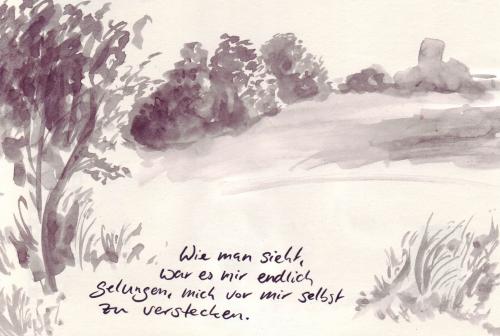 Wie man sieht,
war es mir endlich
gelungen, mich vor mir selbst
zu verstecken.